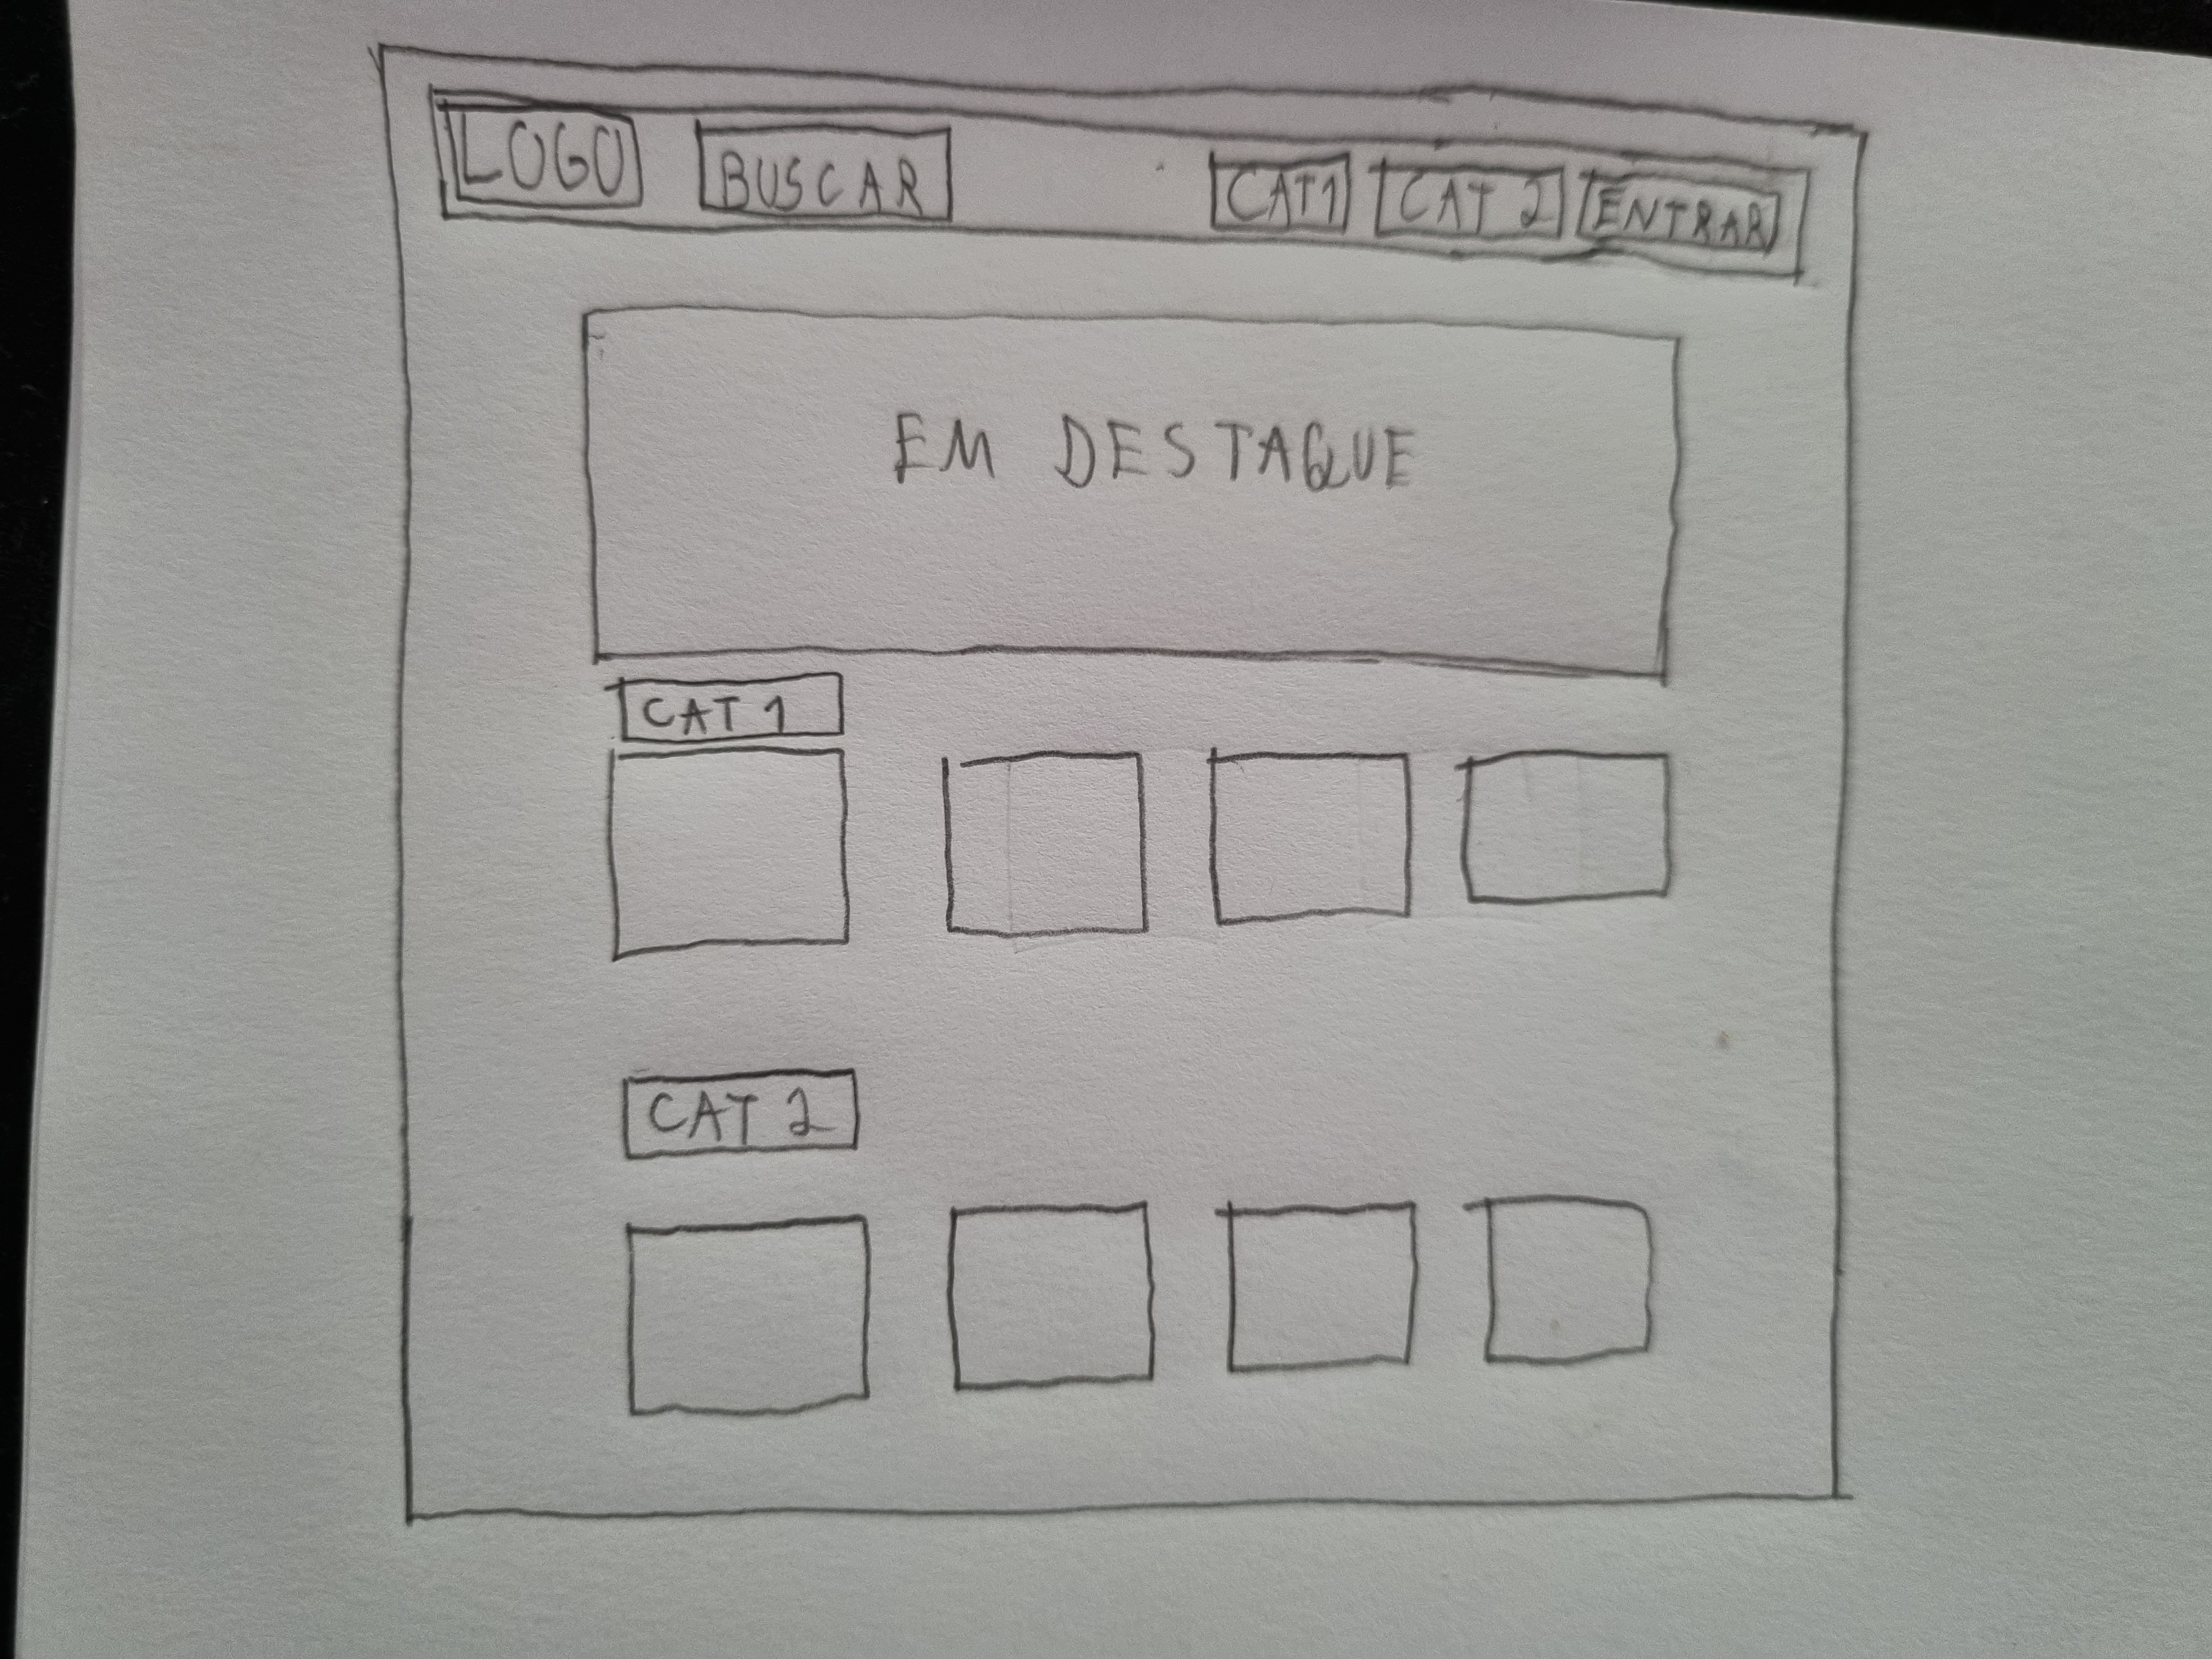 LOGO BUSCAR CAT1 CAT 2 ENTRAR
EM DESTAQUE
CAT 1
CAT 2